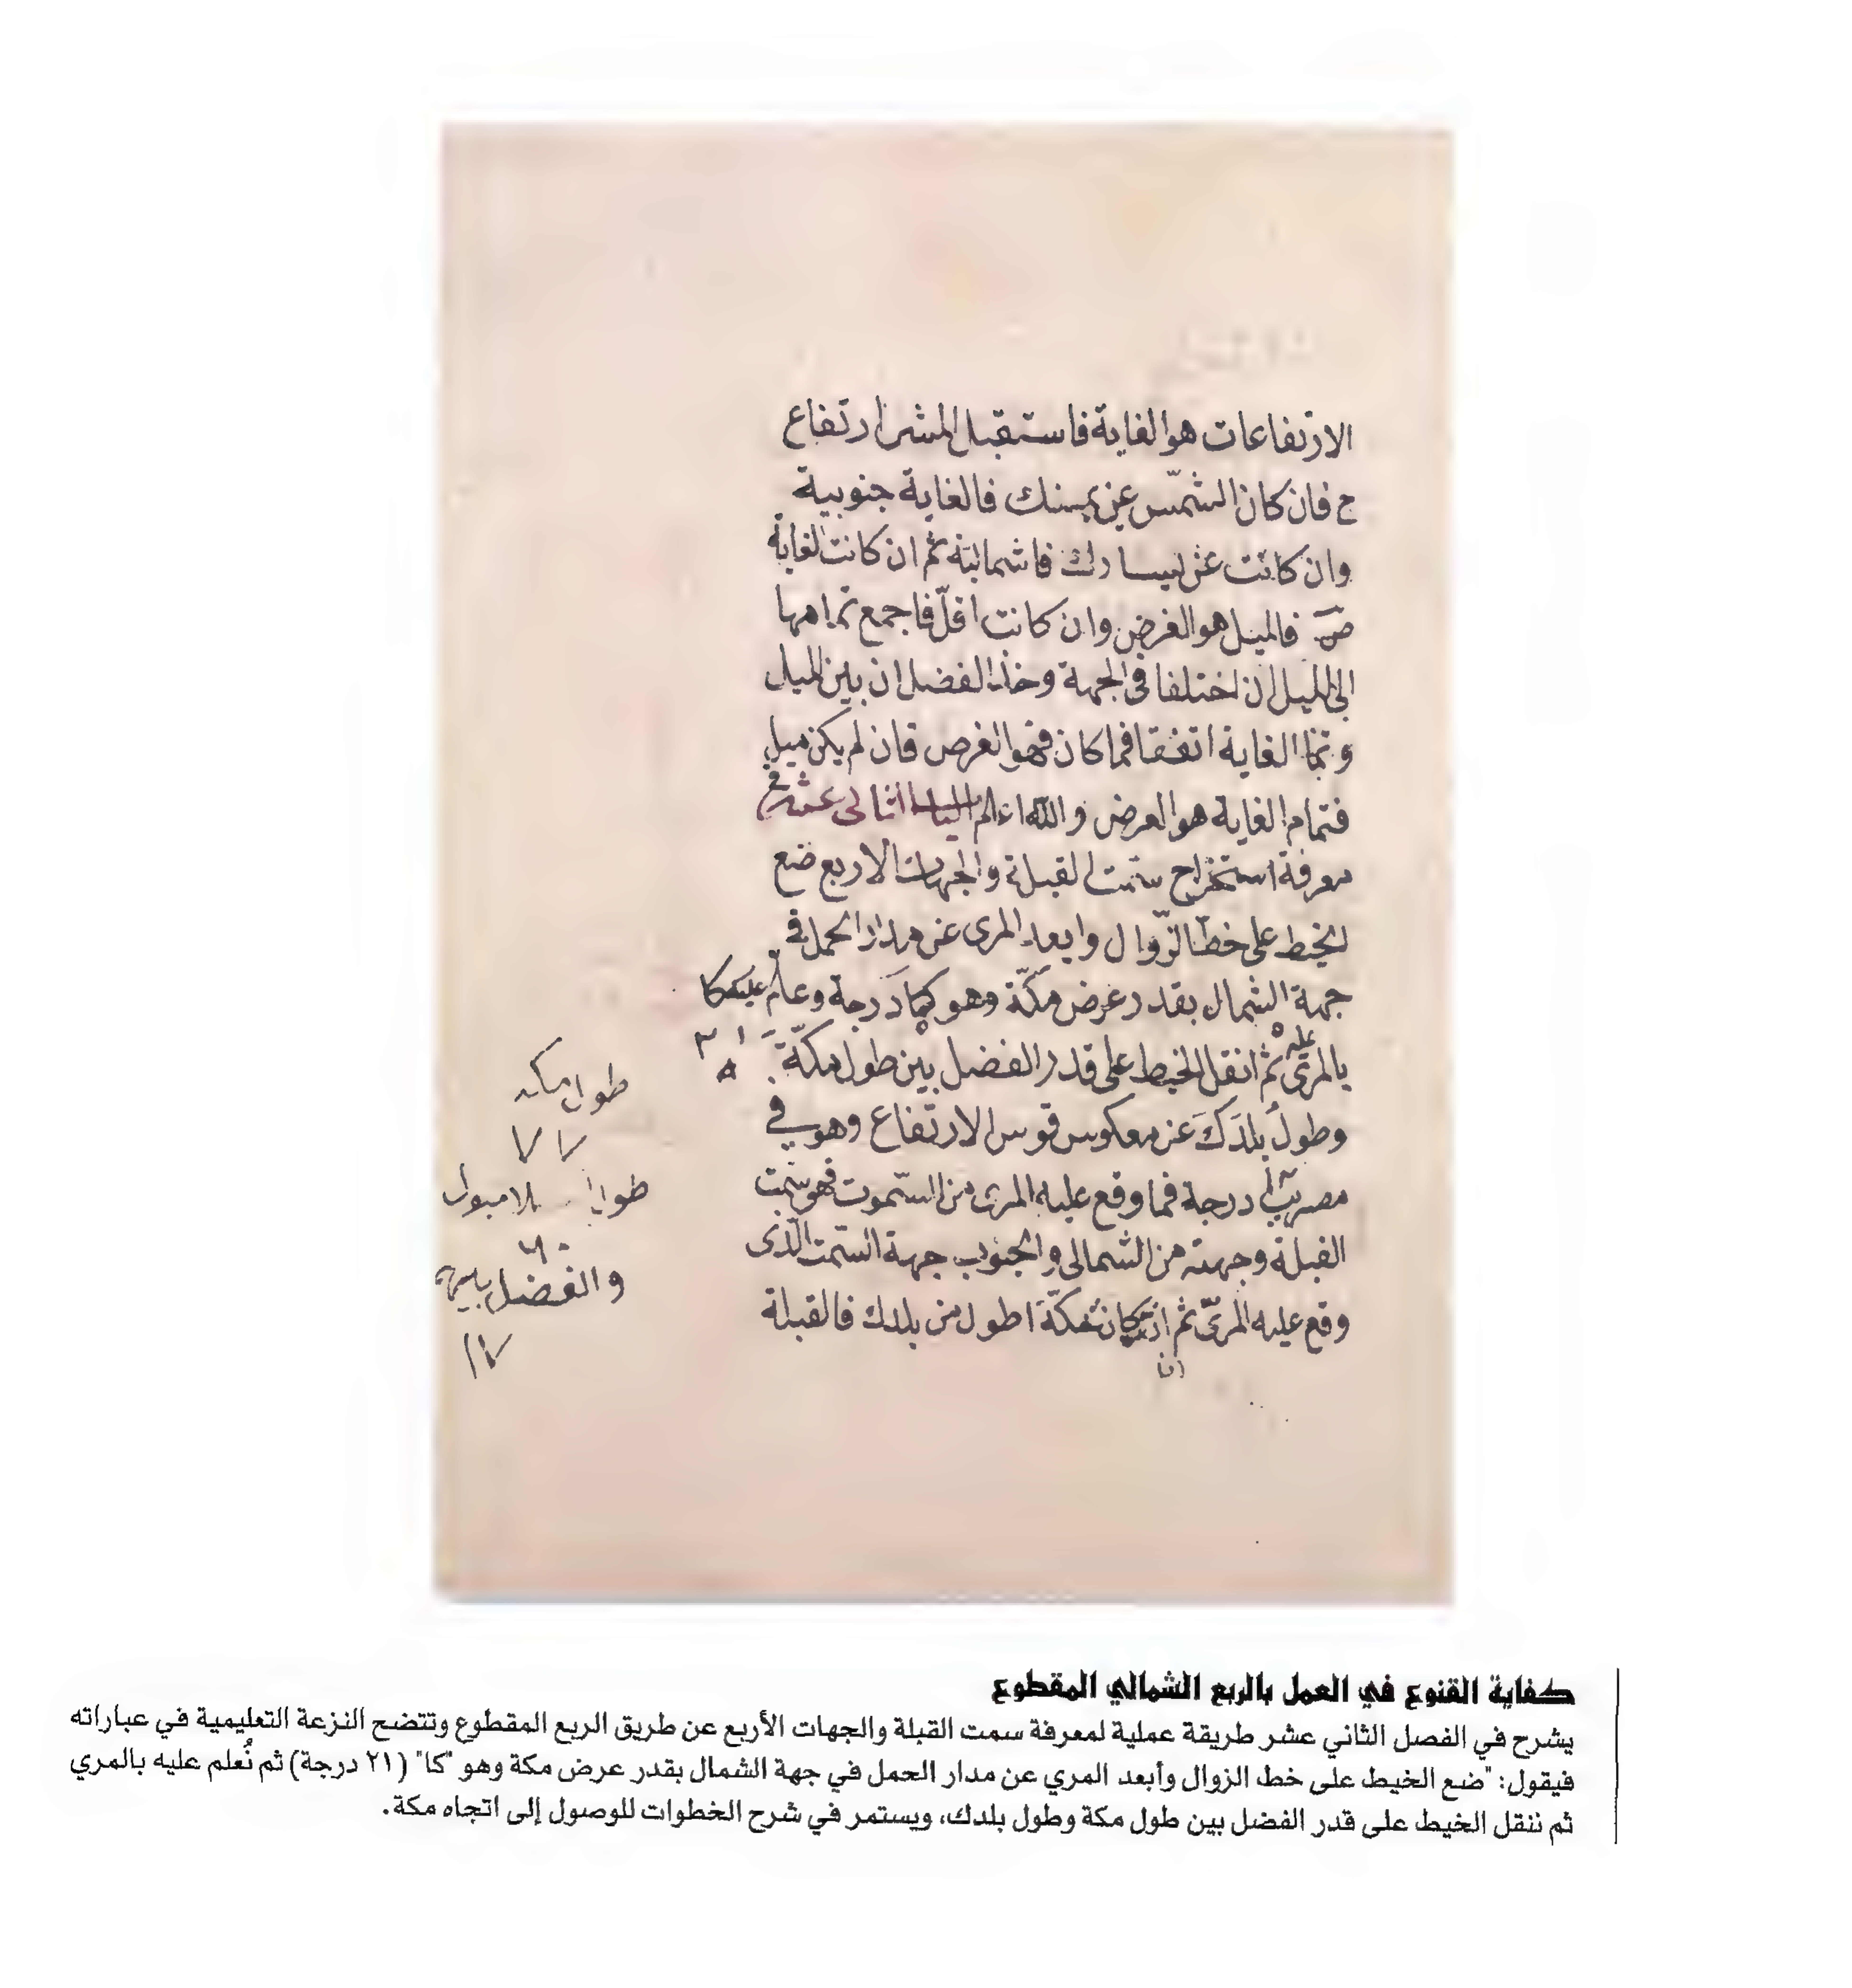 الارتفاعات هو الغاية فاستقبل المشر ارتفاع
ج فان كان الشمس عن يمينك فالغاية جنوبية
وان كانت عن يسارك فاشمالية ثم ان كانت لغاية
ص فالميل هو الغرض وان كانت اقلّ فاجمع تمامها
الى الميل ان اختلفا في الجهة وخذ الفضل ان بين الميل
وتما الغاية اتفقا فما كان فهو الغرض فان لم يكن ميل
فتمام الغاية هو العرض والله اعلم الباب الثانى عشر في
معرفة استخراج سمت القبلة والجهات الاربع ضع
الخيط على خط الزّوال وابعد المرى عن مدار الحمل في
جهة الشمال بقدر عرض مكّة وهو كا درجة وعلم عليه كا
بالمرى ثم انقل الخيط على قدر الفضل بين طول مكّة
وطول بلدك عن معكوس قوس الارتفاع وهو في
مصر درجة فما وقع عليه المرى من السّموت فهو سمت
القبلة وجهته من الشمالى والجنوب جهة السّمت الّذى
وقع عليه المرىّ ثم ان كانت مكّة اطول من بلدك فالقبلة
ان
طول مكه
٧٧
طول
٦٠
والفضل
١٧
كفاية القنوع في العمل بالربع الشمالي المقطوع
يشرح في الفصل الثاني عشر طريقة عملية لمعرفة سمت القبلة والجهات الأربع عن طريق الربع المقطوع وتتضح النزعة التعليمية في عباراته
فيقول: "ضع الخيط على خط الزوال وأبعد المري عن مدار الحمل في جهة الشمال بقدر عرض مكة وهو "كا" (٢١ درجة) ثم نُعلم عليه بالمري
ثم ننقل الخيط على قدر الفضل بين طول مكة وطول بلدك، ويستمر في شرح الخطوات للوصول إلى اتجاه مكة.